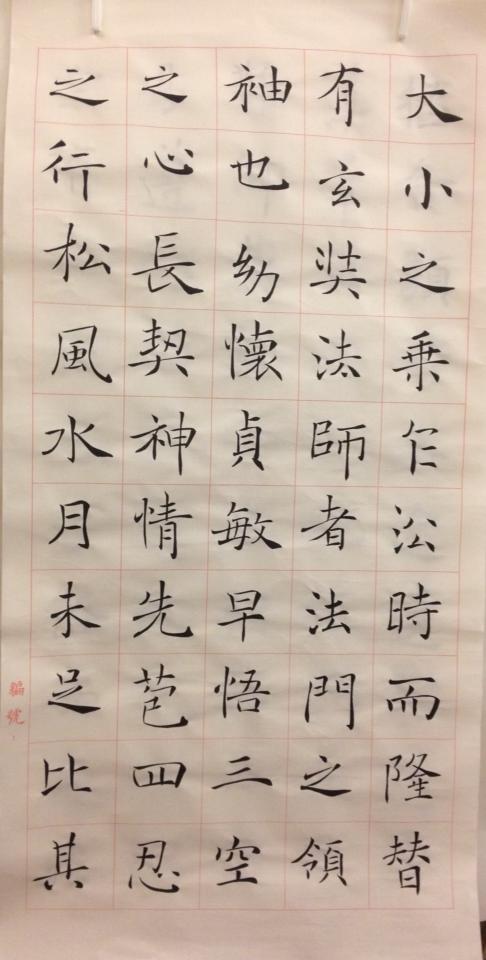 大小之乗乍沿時而隆替
有玄奘法師者法門之領
袖也幼懷貞敏早悟三空
之心長契神情先苞四忍
之行松風水月未足比其
編號